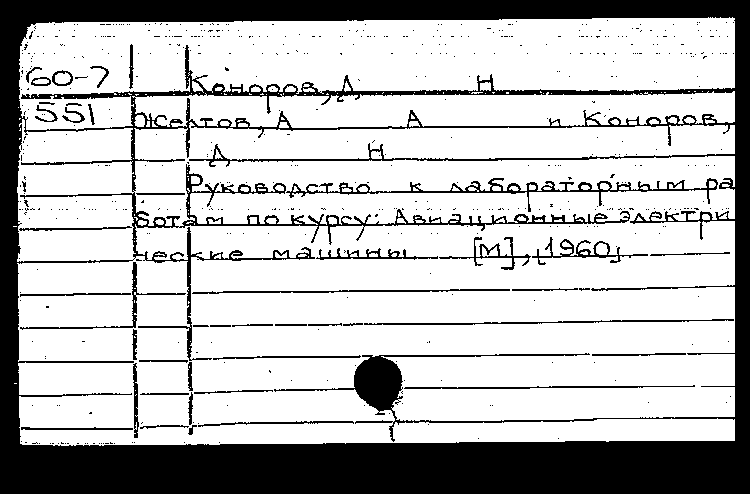 60-7 Коноров, Д Н
551 Желтов, А А и Коноров,
Д Н
Руководство к лабораторным ра
ботам по курсу: Авиационные электри
ческие машины [М], [1960]